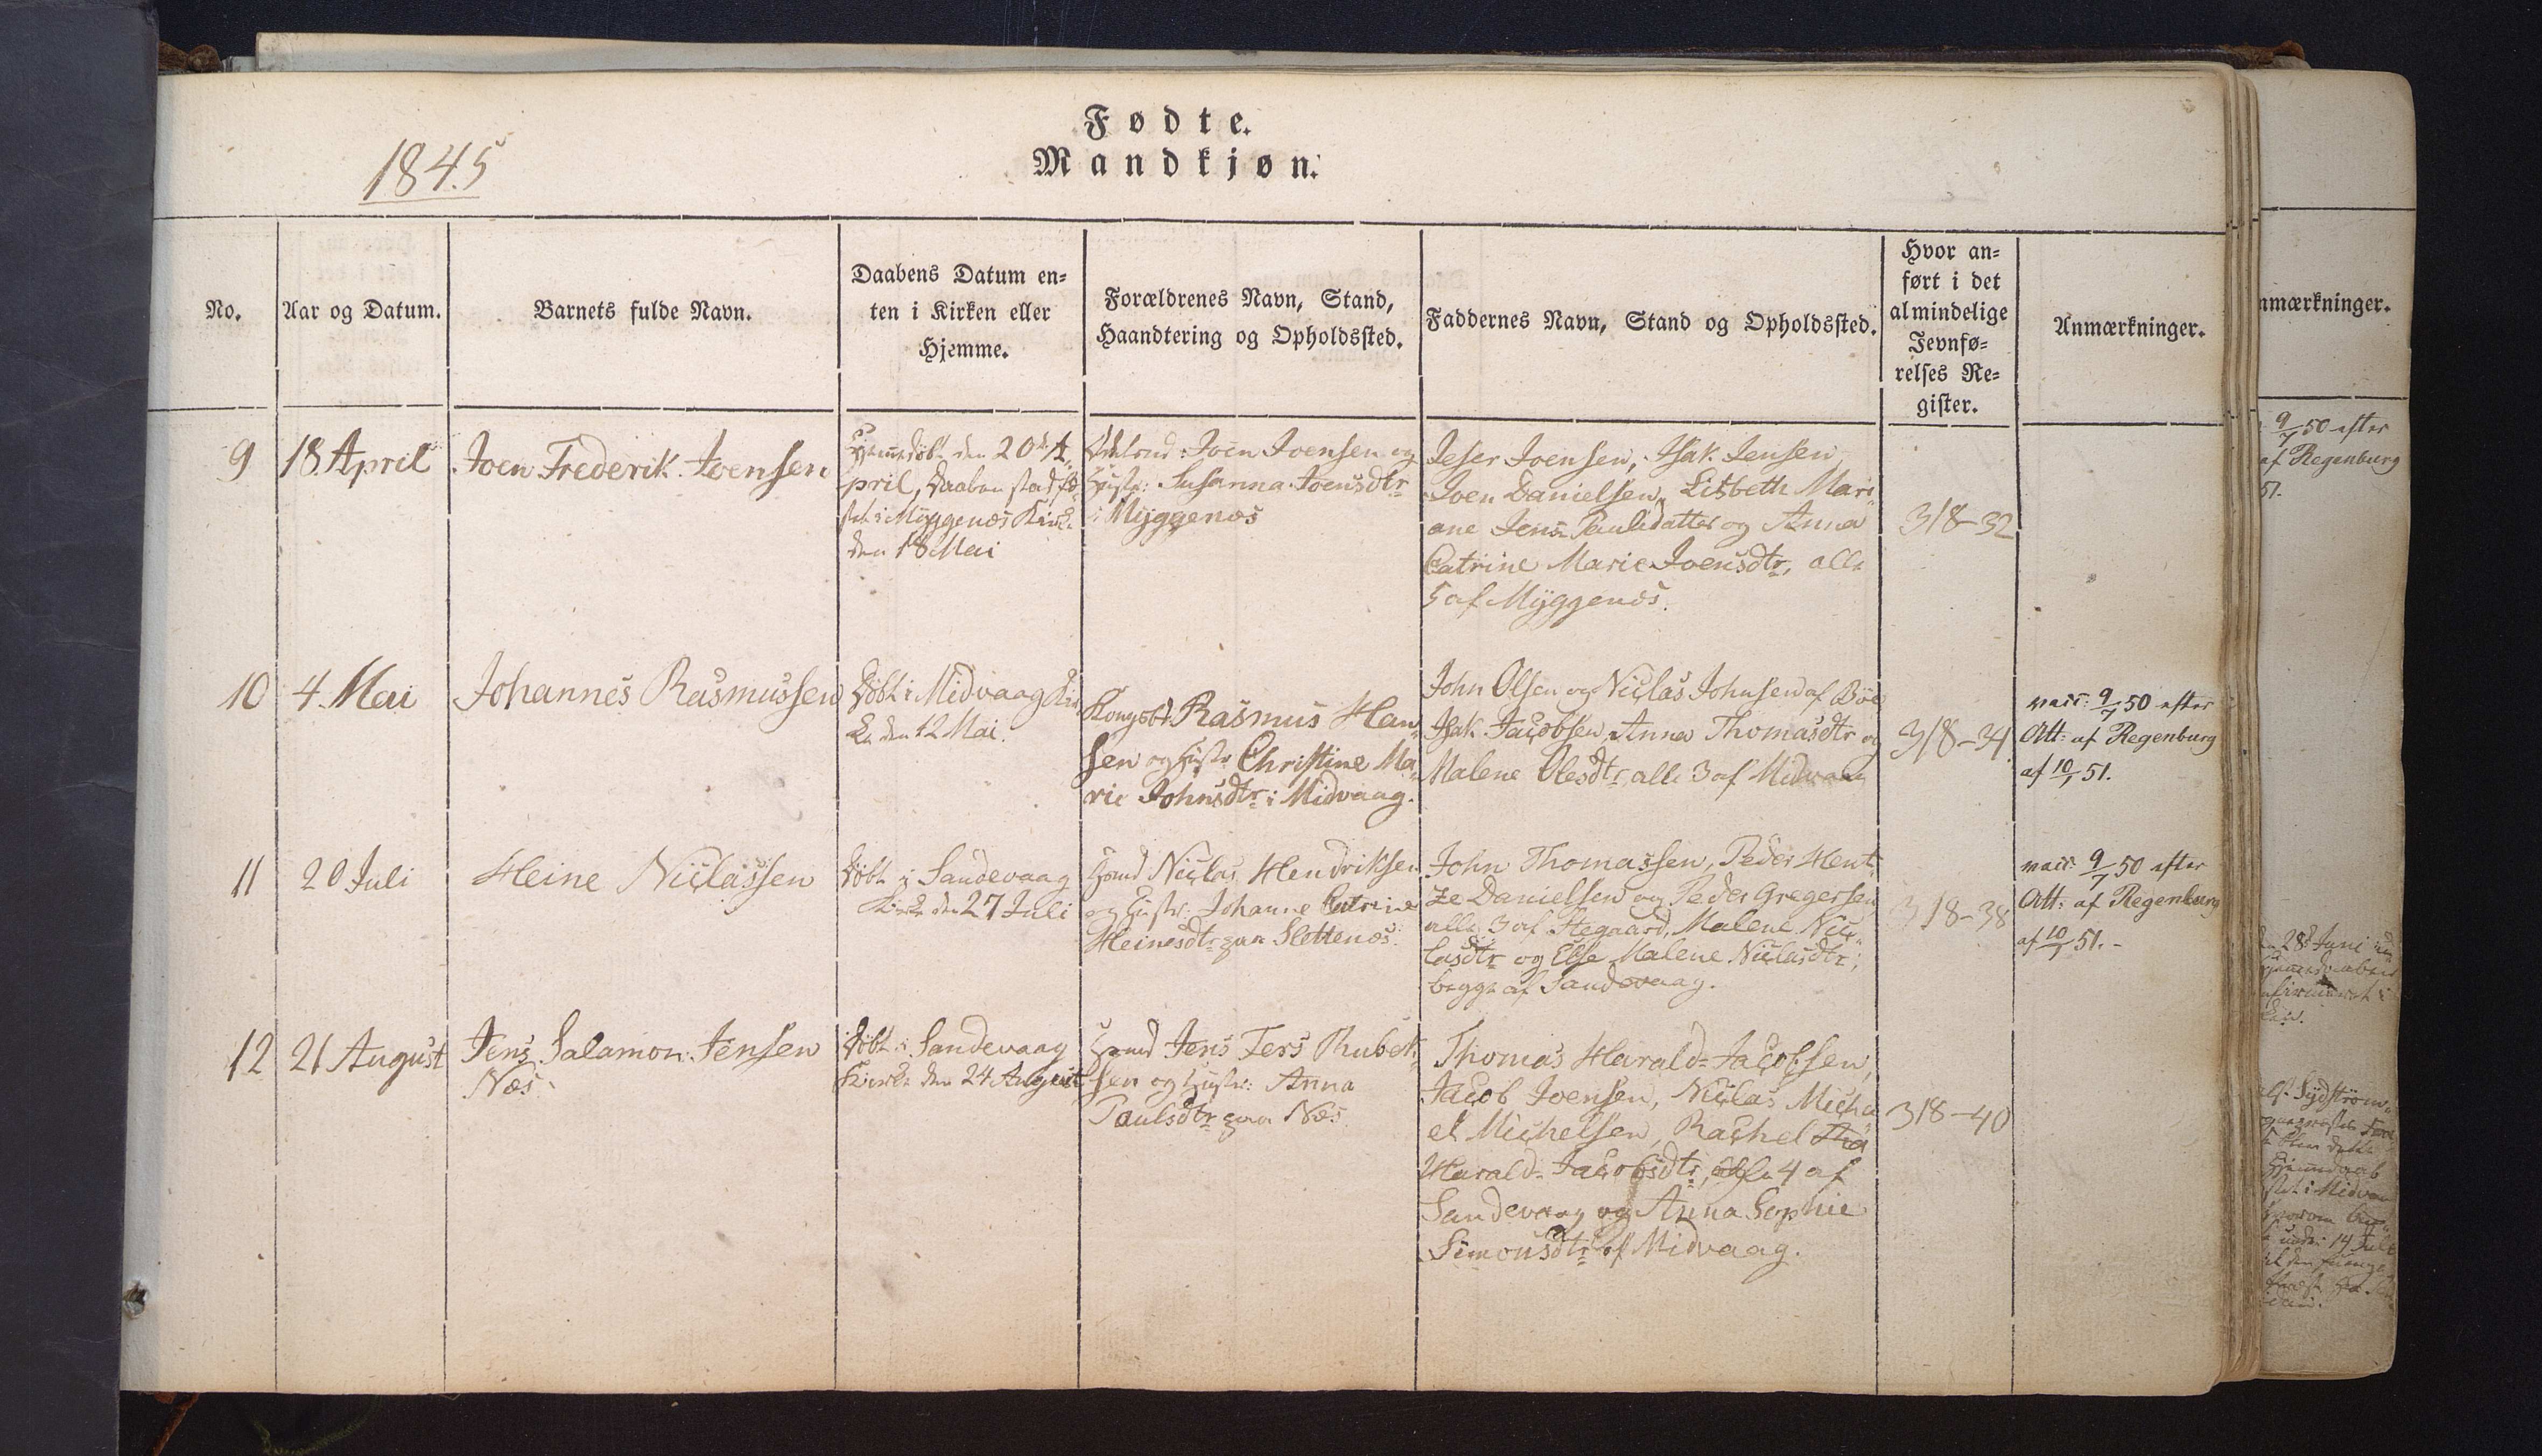 1845
Fødte.
Mandkjøn.
No.
Aar og Datum.
Barnets fulde Navn.
Daabens Datum en=
ten i Kirken eller
Hjemme.
Forældrenes Navn, Stand,
Haandtering og Opholdssted.
Faddernes Navn, Stand og Opholdssted.
Hvor an=
ført i det
almindelige
Jevnfø=
relses Re=
gister.
Anmærkninger.
9
18 April
Joen Frederik Joensen
Hjemmedöbt den 20de A„
pril, Daaben stadfæ„
stet i Myggenæs Kirke
den 18 Mai
Joen Joensen og
Hustr: Susanna Joensdtr
i Myggenæs
Joensen, Isak Jensen,
Joen Danielsen, Lisbeth Mari„
ane Jens Paulsdatter og Anna
Catrine Marie Joensdtr, alle
5 af Myggenæs.
318-32
10
4. Mai
Johannes Rasmussen
Döbt i Midvaag Kir„
ke den 12 Mai.
Kongsb: Rasmus Han„
sen og Hustr Christine Ma„
rie Johnsdtr i Midvaag.
John Olsen og Niclas Johnsen af Böe
Isak Jacobsen, Anna Thomasdtr og
Malene Olesdtr, alle 3 af Midvaag
318-34
vacc: 9/7 50 efter
Att: af Regenburg
af 10/1 51.
11
20 Juli
Heine Niclassen
Döbt i Sandevaag
Kirke den 27 Juli
Niclas Hendriksen
og Hustr: Johanne Catrine
Heinesdtr paa Slettenæs.
John Thomassen, Peder Hent„
ze Danielsen og Peder Gregersen
alle 3 af Stegaard, Malene Nic„
lasdtr og Else Malene Niclasdtr;
begge af Sandevaag.
318-38
vacc: 9/7 50 efter
Att: af Regenburg
af 10/1 51.-
12
21 August
Jens Salamon Jensen
Næs.
Döbt i Sandevaag
Kirke den 24 August
Jens Ters Rubek„
sen og Hustr: Anna
Paulsdtr paa Næs.
Thomas Harald=Jacobsen,
Jacob Joensen, Niclas Micha
el Michelsen, Rachel
Harald=Jacobsdtr, alle 4 af
Sandevaag og Anna Sophie
Simonsdtr af Midvaag.
318-40
nmærkninger.
9/7 50 efter
af Regenburg
51.
28de Juni